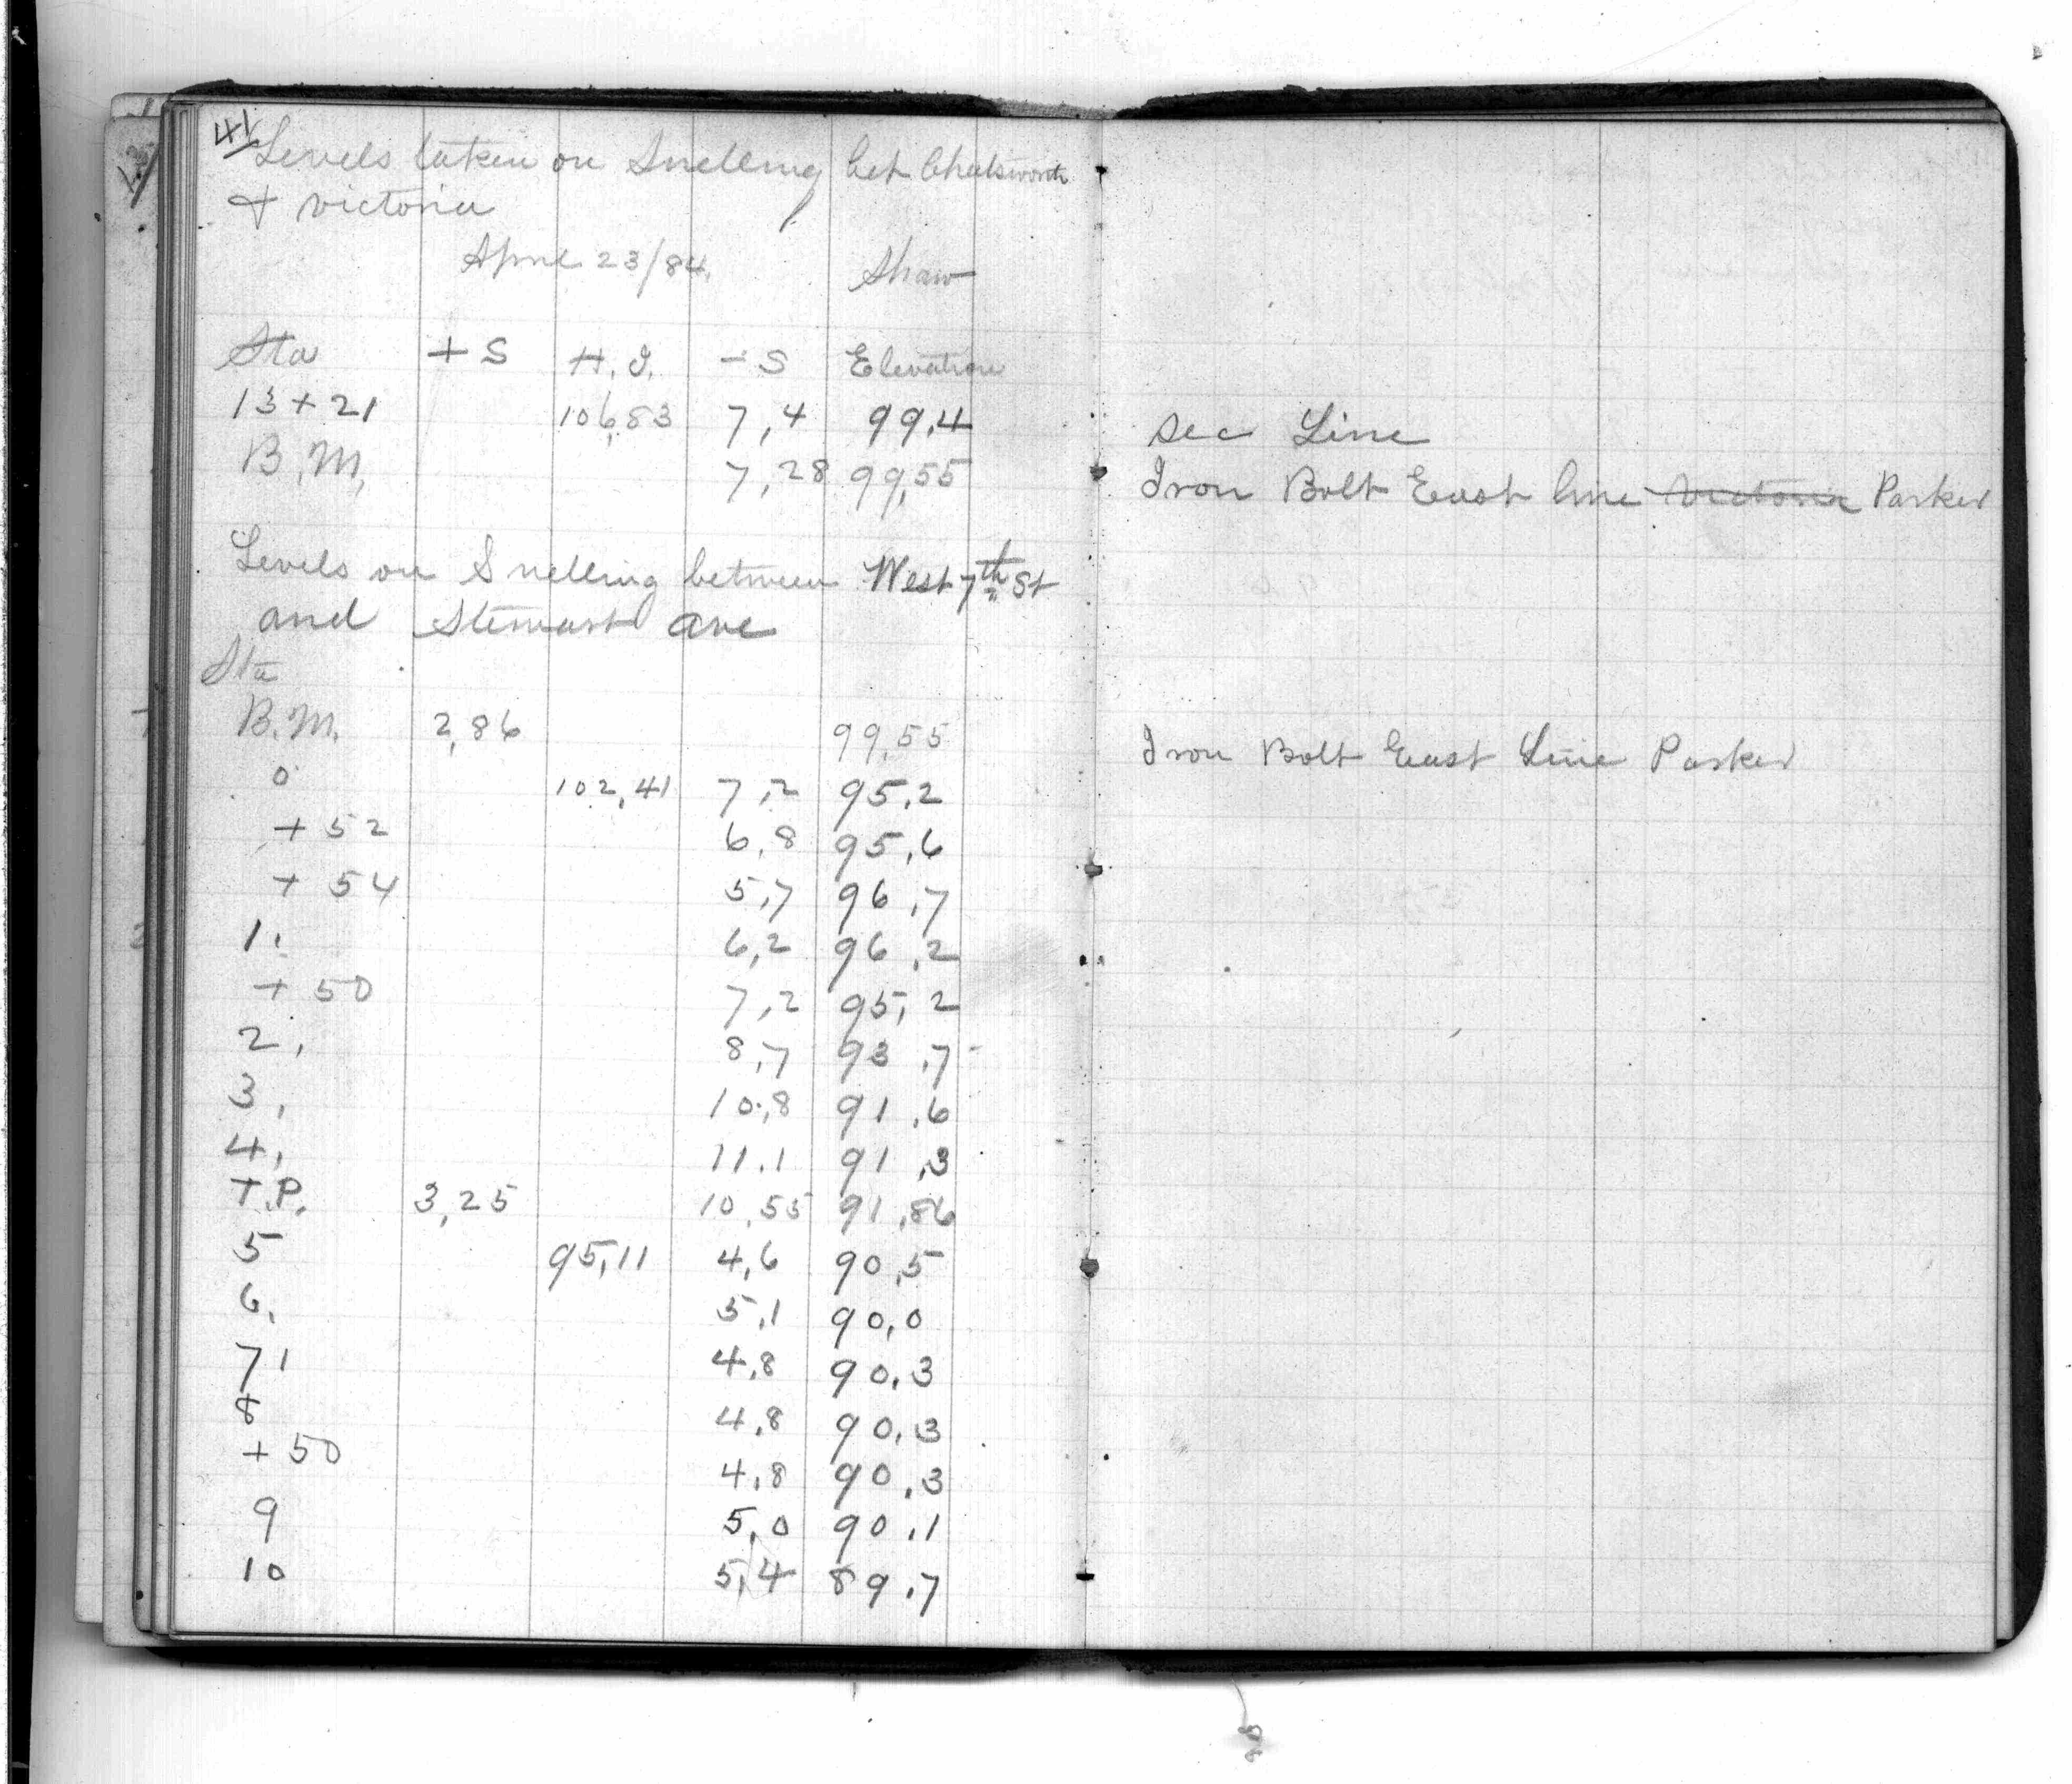 14
Levels taken on Snelling bet Chatsworth
+ victoria
April 23/84. Shaw
Sta + S H.I. - S Elevation
13 + 21 106,83 7,4 99,4 Sec Line
B.M. 7,28 99,55 Iron Bolt East line Victoria Parker
Levels on Snelling between West 7th St
and Stewart ave
Sta
B.M. 2,86 99,55 Iron Bolt East Line Parker
0 102,41 7,2 95,2
+ 52 6,8 95,6
+ 54 5,7 96,7
1. 6,2 96,2
+ 50 7,2 95,2
2, 8,7 93,7
3, 10,8 91,6
4, 11.1 91,3
T.P. 3,25 10,55 91,86
5 95,11 4,6 90,5
6, 5,1 90,0
7, 4,8 90,3
8 4,8 90,3
+ 50 4,8 90,3
9 5,0 90,1
10 5,4 89,7